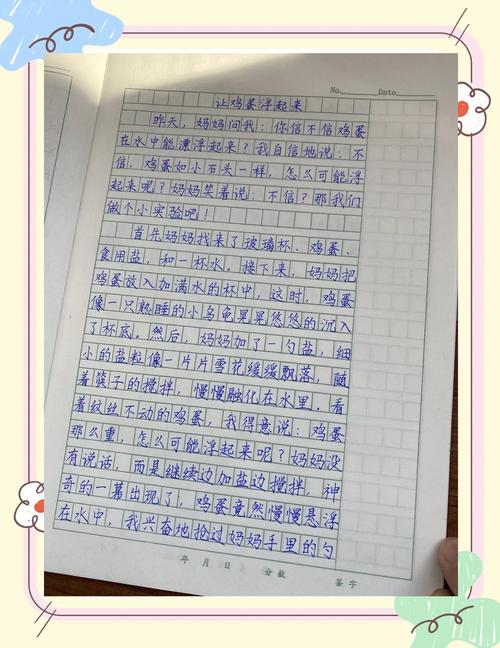 No. Date
让鸡蛋浮起来
昨天，妈妈问我：你信不信鸡蛋
在水中能漂浮起来？我自信地说：不
信，鸡蛋如小石头一样，怎么可能浮
起来呢？妈妈笑着说：不信？那我们
做个小实验吧！
首先妈妈找来了玻璃杯、鸡蛋、
食用盐，和一杯水。接下来，妈妈把
鸡蛋放入加满水的杯中，这时，鸡蛋
像一只熟睡的小乌龟晃晃悠悠的沉入
了杯底。然后，妈妈加了一勺盐，细
小的盐粒像一片片雪花缓缓飘落，随
着筷子的搅拌，慢慢融化在水里。看
着纹丝不动的鸡蛋，我得意说：鸡蛋
那么重，怎么可能浮起来呢？妈妈没
有说话，而是继续边加盐边搅拌，神
奇的一幕出现了，鸡蛋竟然慢慢悬浮
在水中，我兴奋地抢过妈妈手里的勺
年 月 日 分数 签字